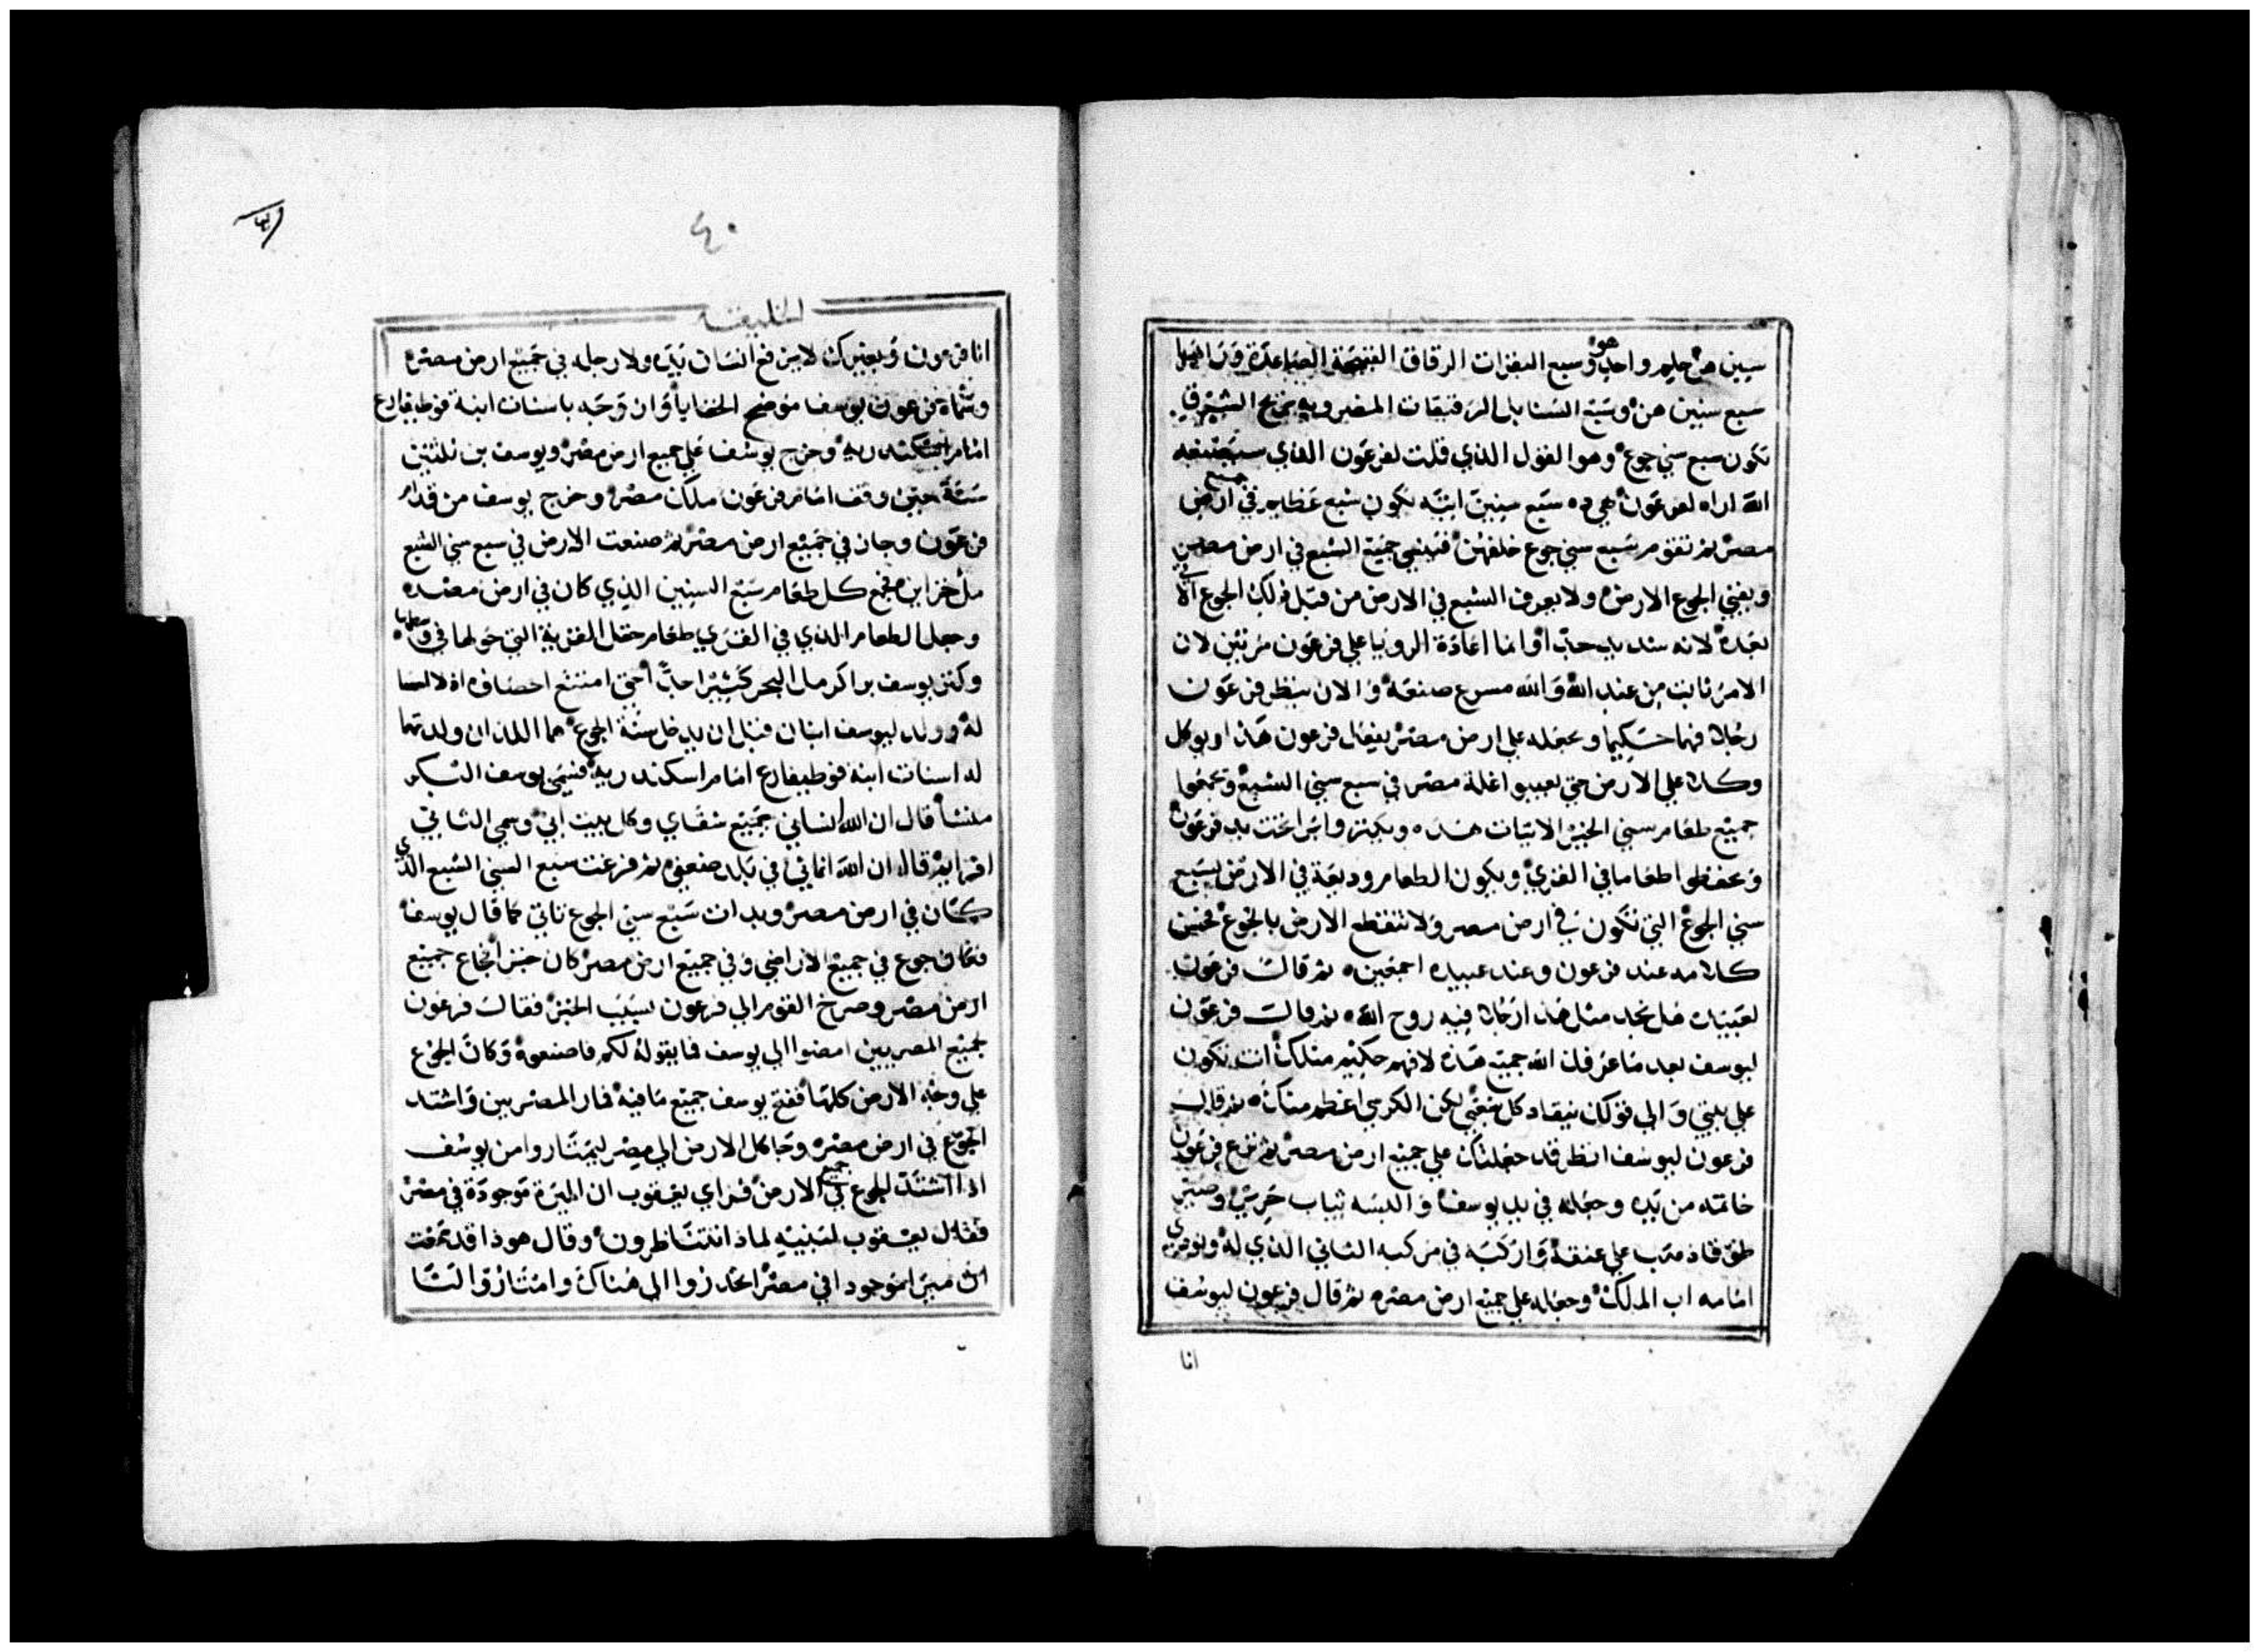 سنين هن حلم واحد هو وسبع البقرات الرقاق القبيحة الصاعدة وراهما
سبع سنين هن وسبع السنابل الرقيقات المضروبه بريح الشرقي
تكون سبع سني جوع وهو القول الذي قلت لفرعون الذي سيصنعه
الله اراه لفرعون هي ده سبع سنين اتيه تكون شبع عظايم في جميع ارض
مصر ثم تقوم سبع سني جوع خلفهن فينسي جميع الشبع في ارض مصر
ويفني الجوع الارض ولا يعرف الشبع في الارض من قبل ذلك الجوع الاتي
بعده لانه شديد جدا واما اعادة الرويا علي فرعون مرتين لان
الامر ثابت من عند الله والله مسرع صنعه والان ينظر فرعون
رجلا فهما حكيما ويجعله علي ارض مصر يفعل فرعون هذا ويوكل
وكلا علي الارض حتي يعيبوا غلة مصر في سبع سني الشبع ويجمعوا
جميع طعام سني الخير الاتيات هذه ويكنزوا برا تحت يد فرعون
ويحفظوا طعاما في القري ويكون الطعام وديعة في الارض لسبع
سني الجوع التي تكون في ارض مصر ولا تنقطع الارض بالجوع فحسن
كلامه عند فرعون وعند عبيده اجمعين ثم قال فرعون
لعبيده هل نجد مثل هذا رجلا فيه روح الله ثم قال فرعون
ليوسف بعد ما عرفك الله جميع هذه لا فهم حكيم مثلك انت تكون
علي بيتي والي قولك ينقاد كل شعبي لكن الكرسي اعظم منك ثم قال
فرعون ليوسف انظر قد جعلتك علي جميع ارض مصر ثم نزع فرعون
خاتمه من يده وجعله في يد يوسف والبسه ثياب حرير وصير
طوقا ذهب علي عنقه واركبه في مركبه الثاني الذي له ونودي
امامه اب الملك وجعله علي جميع ارض مصر ثم قال فرعون ليوسف
انا
٤٠
الخليقة
انا فرعون وبغيرك لا يرفع انسان يده ولا رجله في جميع ارض مصر
وسماه فرعون يوسف موضح الخفايا وان وجه باسنات ابنة فوطيفارع
امام اسكندريه وخرج يوسف علي جميع ارض مصر ويوسف بن ثلثين
سنة حين وقف امام فرعون ملك مصر وخرج يوسف من قدام
فرعون وجاز في جميع ارض مصر ثم صنعت الارض في سبع سني الشبع
مل خزاين فجمع كل طعام سبع السنين الذي كان في ارض مصر
وجعل الطعام الذي في القري طعام حقل القرية التي حولها في وسطها
وكنز يوسف برا كرمال البحر كثيرا جدا حتي امتنع احصاوه اذ لا احصا
له وولد ليوسف ابنان قبل ان يدخل سنة الجوع هما اللذان ولدتهما
له اسنات ابنة فوطيفارع امام اسكندريه فسمي يوسف البكر
منشا قال ان الله انساني جميع شقاي وكل بيت ابي وسمي الثاني
افرايم قال ان الله انماني في بلد ضعفي ثم فرغت سبع السني الشبع الذي
كان في ارض مصر وبدات سبع سني الجوع تاتي كما قال يوسف
فكان جوع في جميع الاراضي وفي جميع ارض مصر كان خبز فجاع جميع
ارض مصر وصرخ القوم الي فرعون بسبب الخبز فقال فرعون
لجميع المصريين امضوا الي يوسف فما يقوله لكم فاصنعوه وكان الجوع
علي وجه الارض كلها ففتح يوسف جميع ما فيه فمار المصريين واشتد
الجوع في ارض مصر وجا كل الارض الي مصر ليمتاروا من يوسف
اذ اشتد الجوع في جميع الارض فراي يعقوب ان الميرة موجودة في مصر
فقال يعقوب لبنيه لماذا تتناظرون وقال هوذا قد سمعت
ان ميرا موجودا في مصر انحدروا الي هناك وامتاروا لنا